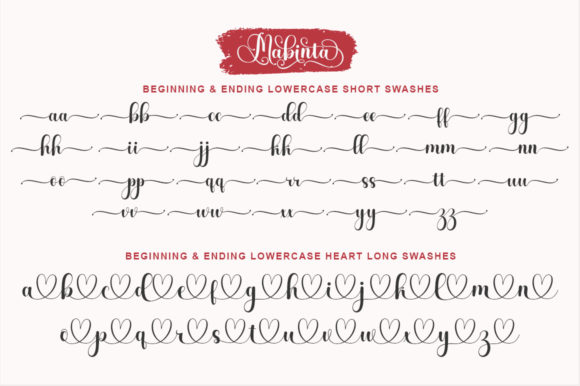 Mabinta
BEGINNING & ENDING LOWERCASE SHORT SWASHES
aa bb cc dd ee ff gg
hh ii jj kk ll mm nn
oo pp qq rr ss tt uu
vv ww xx yy zz
BEGINNING & ENDING LOWERCASE HEART LONG SWASHES
a b c d e f g h i j k l m n
o p q r s t u v w x y z